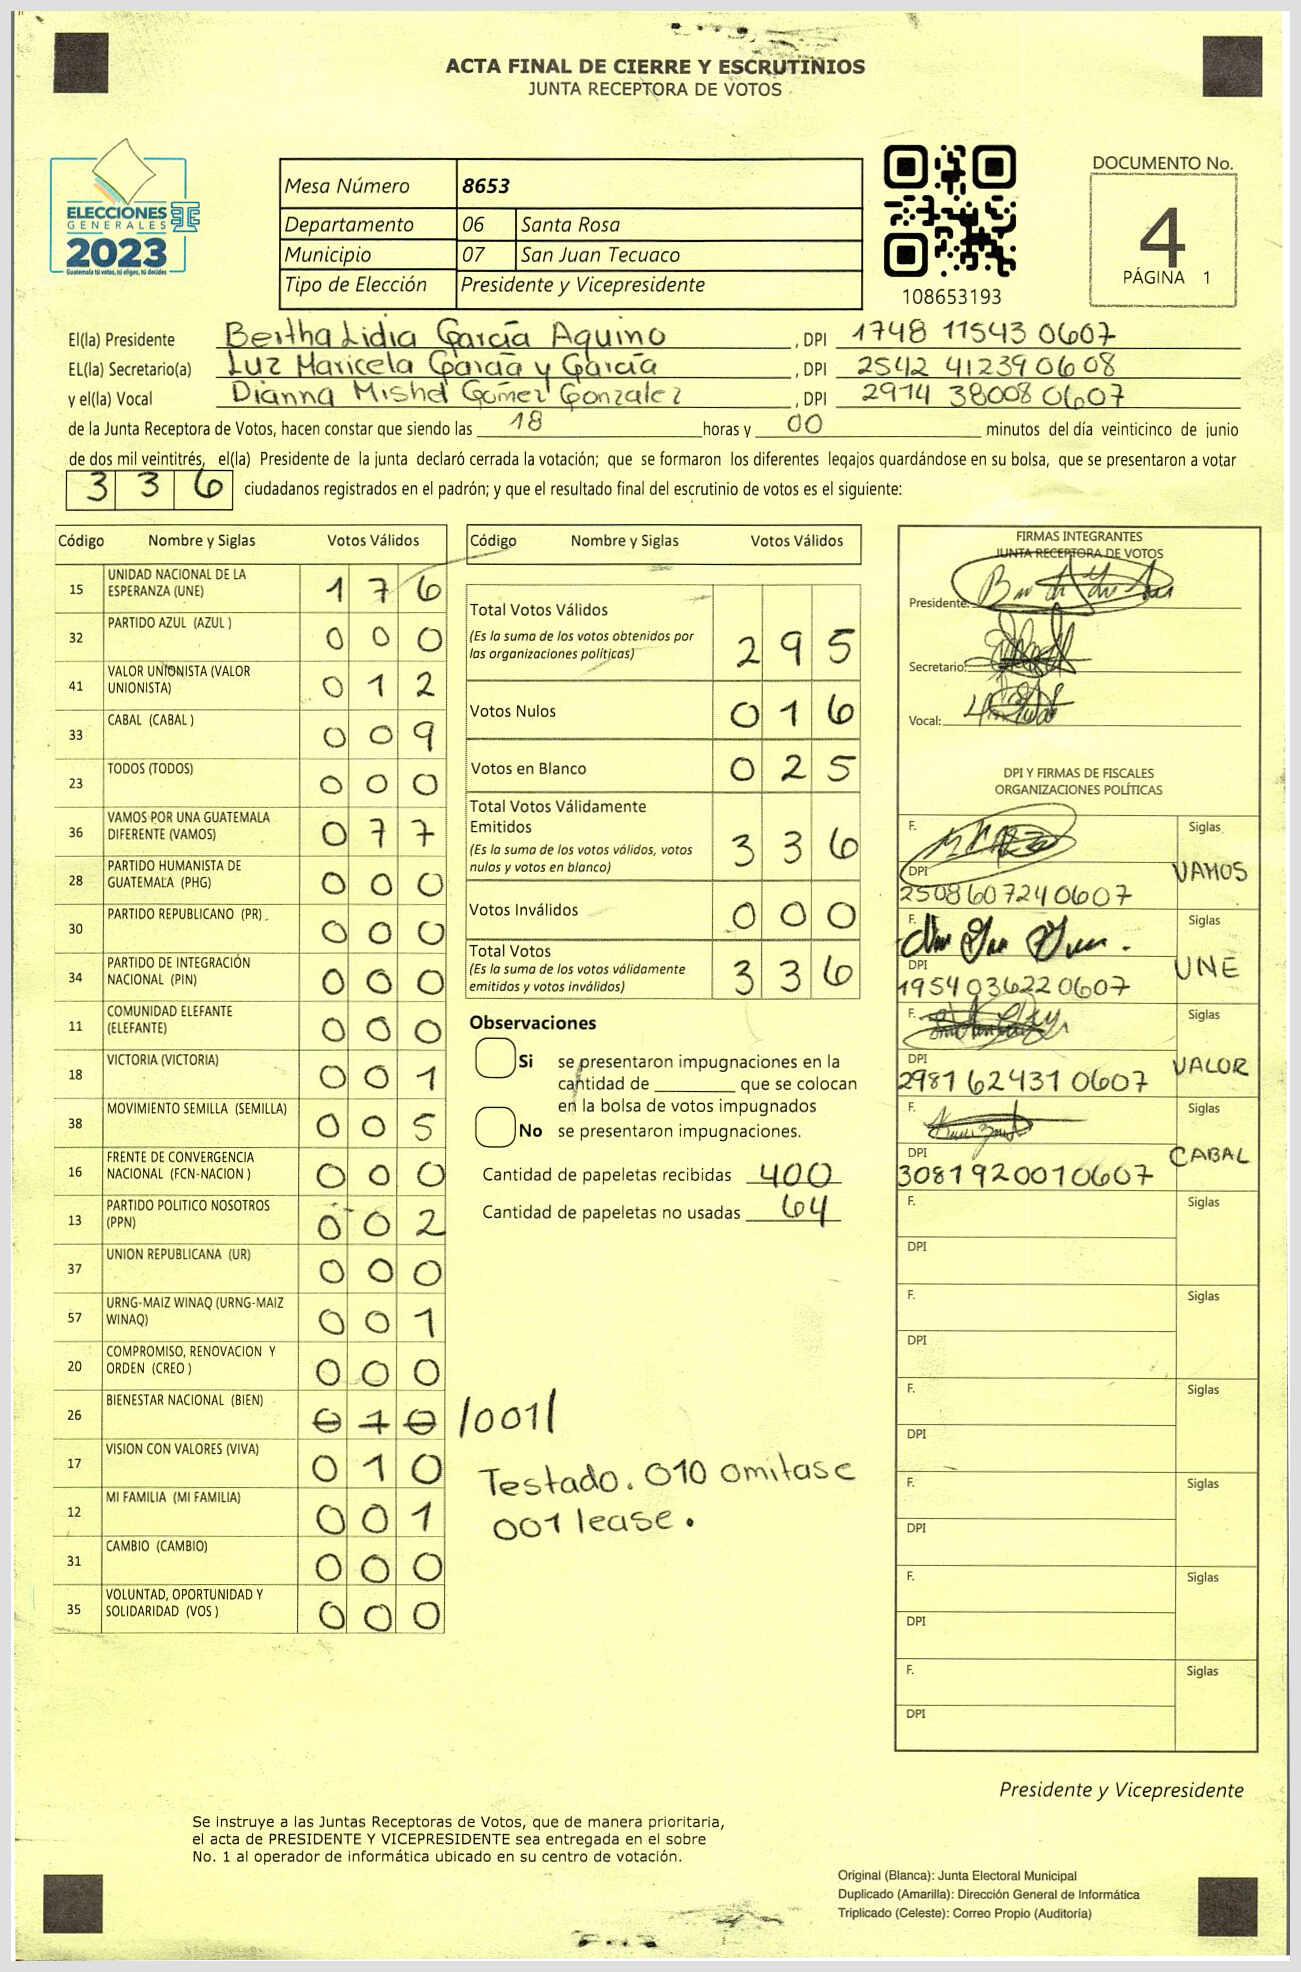 ACTA FINAL DE CIERRE Y ESCRUTINIOS
JUNTA RECEPTORA DE VOTOS
ELECCIONES
GENERALES
2023
Guatemala tú votas, tú eliges, tú decides
Mesa Número 8653
Departamento 06 Santa Rosa
Municipio 07 San Juan Tecuaco
Tipo de Elección Presidente y Vicepresidente
108653193
DOCUMENTO No.
4
PÁGINA 1
El(la) Presidente Bertha Lidia García Aquino, DPI 1748 11543 0607
EL(la) Secretario(a) Luz Maricela García y García, DPI 2542 41239 0608
y el(la) Vocal Dianna Mishel Gómez Gonzalez, DPI 2914 38008 0607
de la Junta Receptora de Votos, hacen constar que siendo las 18 horas y 00 minutos del día veinticinco de junio
de dos mil veintitrés, el(la) Presidente de la junta declaró cerrada la votación; que se formaron los diferentes legajos guardándose en su bolsa, que se presentaron a votar
336 ciudadanos registrados en el padrón; y que el resultado final del escrutinio de votos es el siguiente:
Código Nombre y Siglas Votos Válidos
15 UNIDAD NACIONAL DE LA ESPERANZA (UNE) 176
32 PARTIDO AZUL (AZUL ) 000
41 VALOR UNIONISTA (VALOR UNIONISTA) 012
33 CABAL (CABAL ) 009
23 TODOS (TODOS) 000
36 VAMOS POR UNA GUATEMALA DIFERENTE (VAMOS) 077
28 PARTIDO HUMANISTA DE GUATEMALA (PHG) 000
30 PARTIDO REPUBLICANO (PR) 000
34 PARTIDO DE INTEGRACIÓN NACIONAL (PIN) 000
11 COMUNIDAD ELEFANTE (ELEFANTE) 000
18 VICTORIA (VICTORIA) 001
38 MOVIMIENTO SEMILLA (SEMILLA) 005
16 FRENTE DE CONVERGENCIA NACIONAL (FCN-NACION ) 000
13 PARTIDO POLITICO NOSOTROS (PPN) 002
37 UNION REPUBLICANA (UR) 000
57 URNG-MAIZ WINAQ (URNG-MAIZ WINAQ) 001
20 COMPROMISO, RENOVACION Y ORDEN (CREO ) 000
26 BIENESTAR NACIONAL (BIEN) 010 /001/
17 VISION CON VALORES (VIVA) 010
12 MI FAMILIA (MI FAMILIA) 001
31 CAMBIO (CAMBIO) 000
35 VOLUNTAD, OPORTUNIDAD Y SOLIDARIDAD (VOS ) 000
Código Nombre y Siglas Votos Válidos
Total Votos Válidos
(Es la suma de los votos obtenidos por
las organizaciones políticas) 295
Votos Nulos 016
Votos en Blanco 025
Total Votos Válidamente
Emitidos
(Es la suma de los votos válidos, votos
nulos y votos en blanco) 336
Votos Inválidos 000
Total Votos
(Es la suma de los votos válidamente
emitidos y votos inválidos) 336
Observaciones
Si se presentaron impugnaciones en la
cantidad de ________ que se colocan
en la bolsa de votos impugnados
No se presentaron impugnaciones.
Cantidad de papeletas recibidas 400
Cantidad de papeletas no usadas 64
Testado. 010 omitase
001 lease.
FIRMAS INTEGRANTES
JUNTA RECEPTORA DE VOTOS
Presidente:
Secretario:
Vocal:
DPI Y FIRMAS DE FISCALES
ORGANIZACIONES POLÍTICAS
F. Siglas
DPI VAMOS
2508607240607
F. Siglas
DPI UNE
1954036220607
F. Siglas
DPI VALOR
2981 62431 0607
F. Siglas
DPI CABAL
3081920010607
F. Siglas
DPI
F. Siglas
DPI
F. Siglas
DPI
F. Siglas
DPI
F. Siglas
DPI
F. Siglas
DPI
Presidente y Vicepresidente
Se instruye a las Juntas Receptoras de Votos, que de manera prioritaria,
el acta de PRESIDENTE Y VICEPRESIDENTE sea entregada en el sobre
No. 1 al operador de informática ubicado en su centro de votación.
Original (Blanca): Junta Electoral Municipal
Duplicado (Amarilla): Dirección General de Informática
Triplicado (Celeste): Correo Propio (Auditoría)